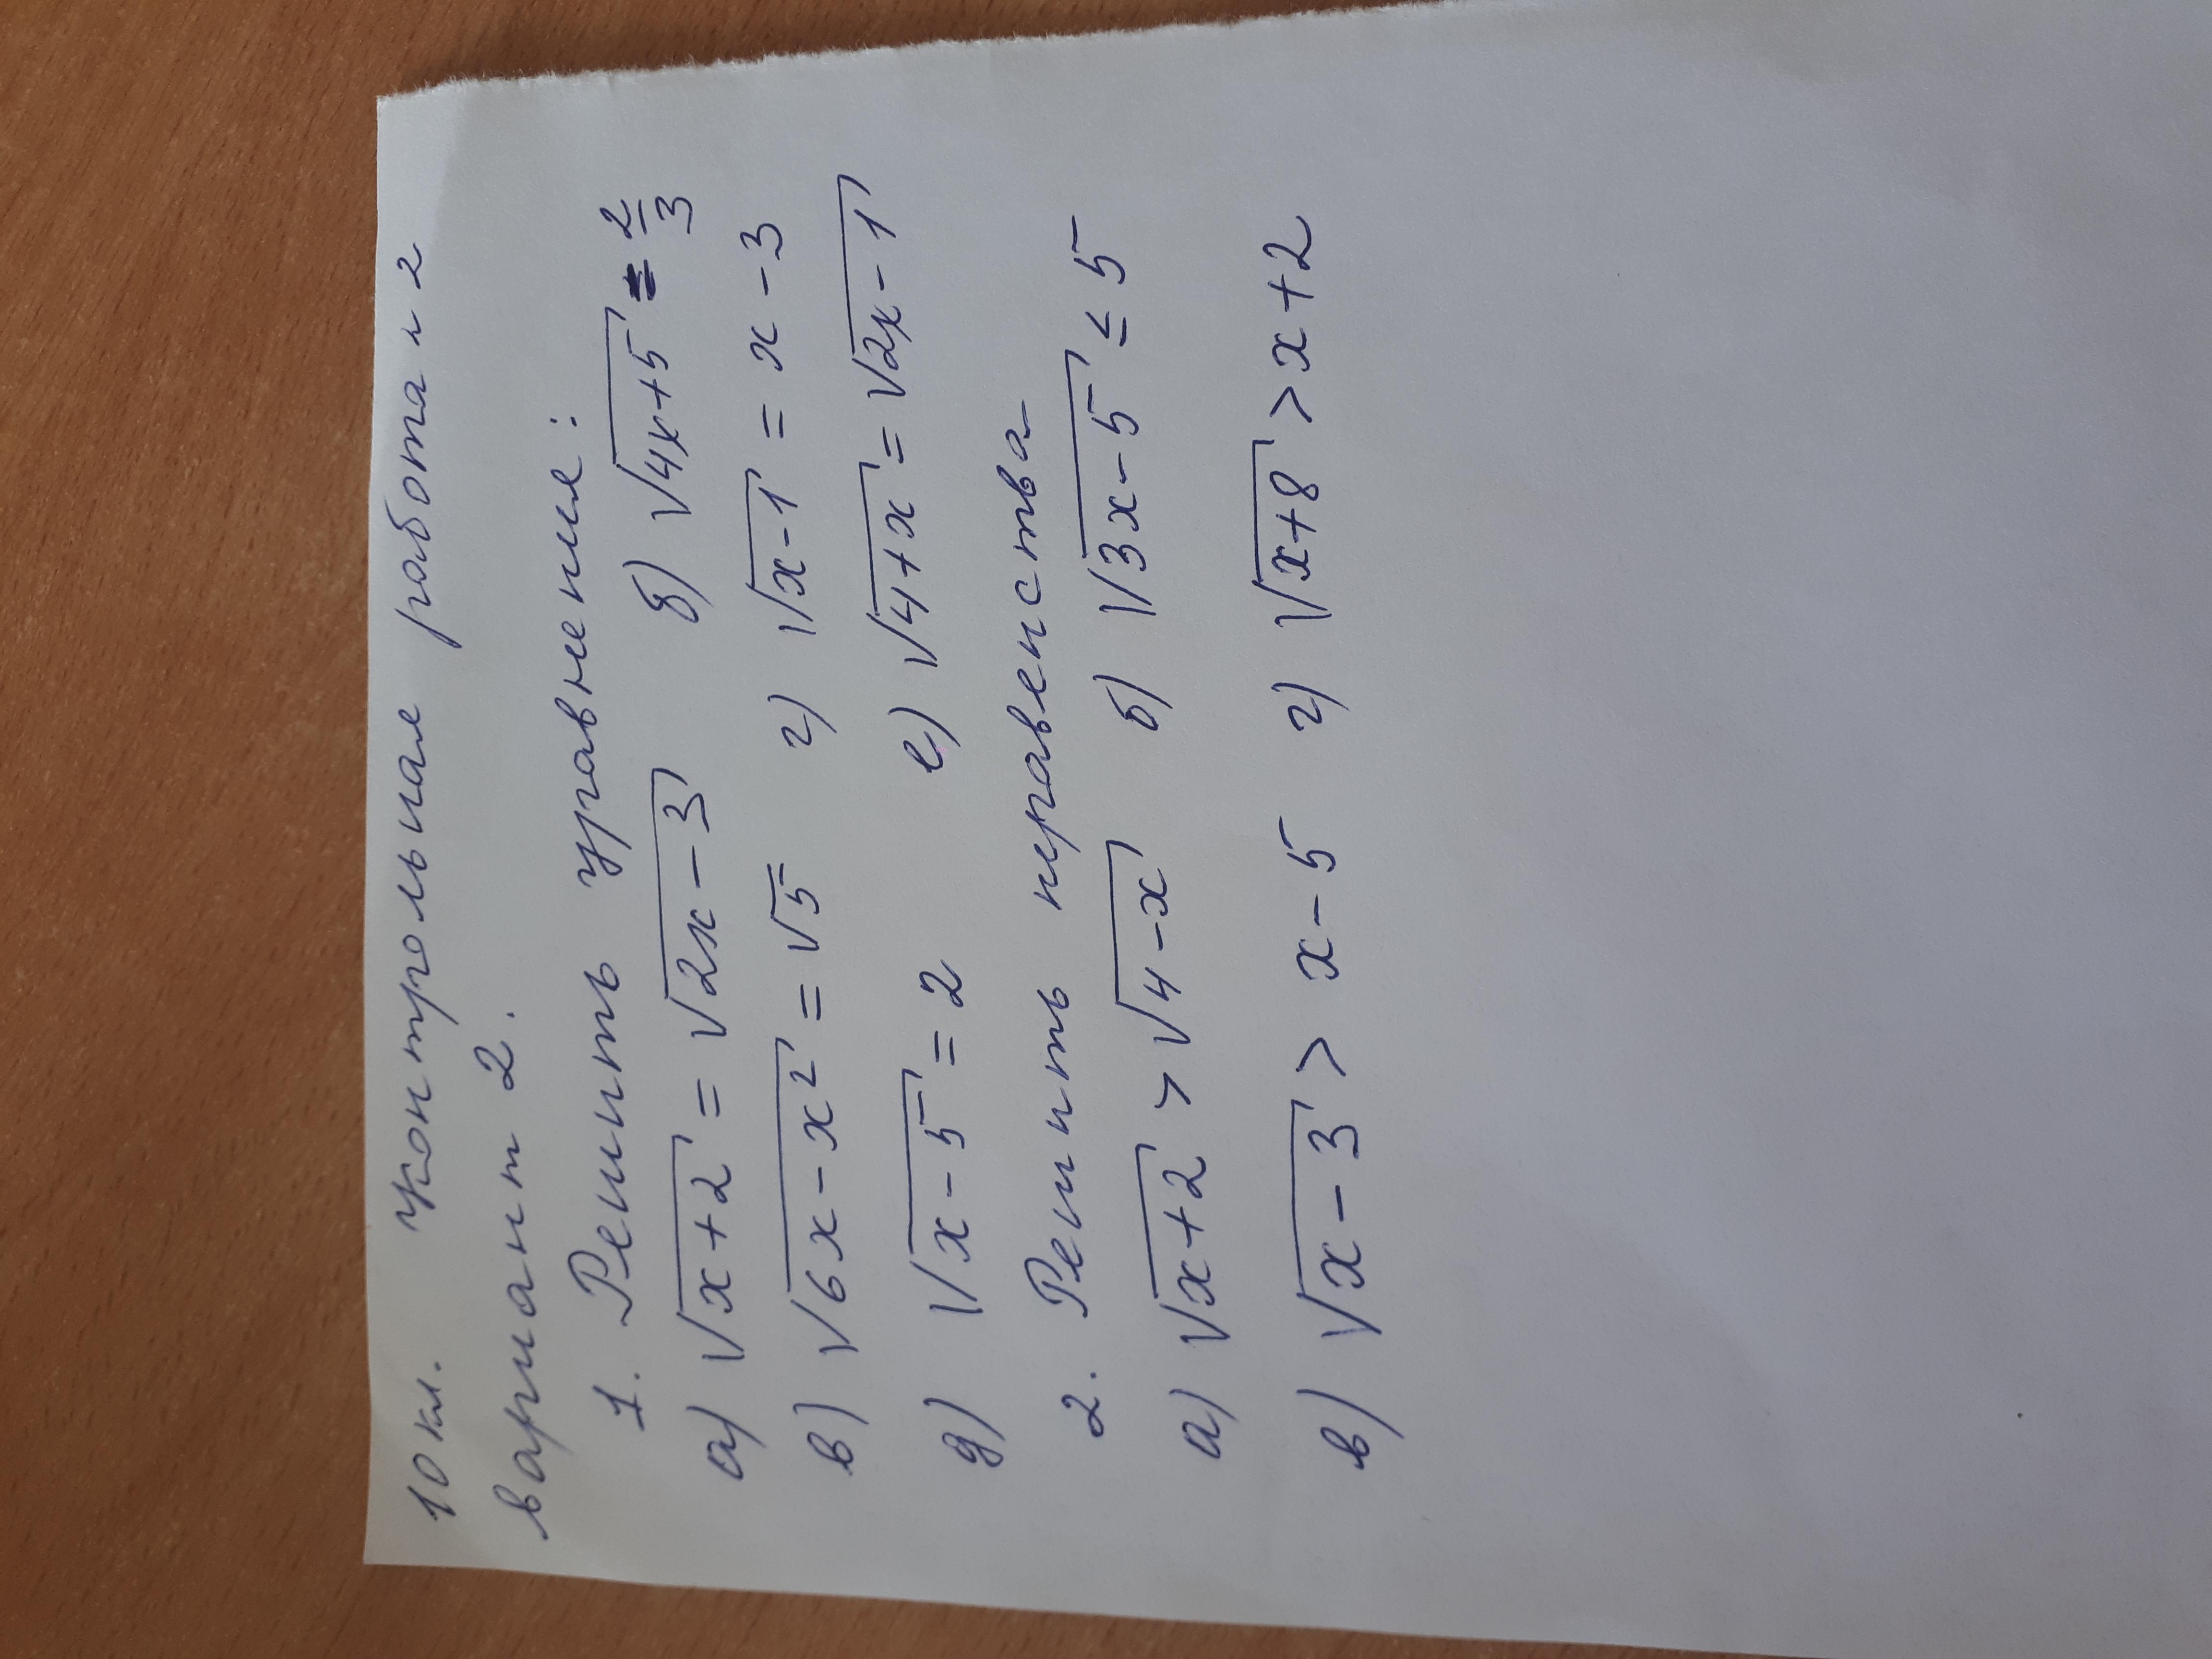 10 кл. Контрольная работа n 2
вариант 2.
1. Решить уравнения:
а) √(x+2) = √(2x-3) б) √(4x+5) = 2/3
в) √(6x-x²) = √5 г) √(x-1) = x-3
д) √(x-5) = 2 е) √(4+x) = √(2x-1)
2. Решить неравенства
а) √(x+2) > √(4-x) б) √(3x-5) ≤ 5
в) √(x-3) > x-5 г) √(x+8) > x+2